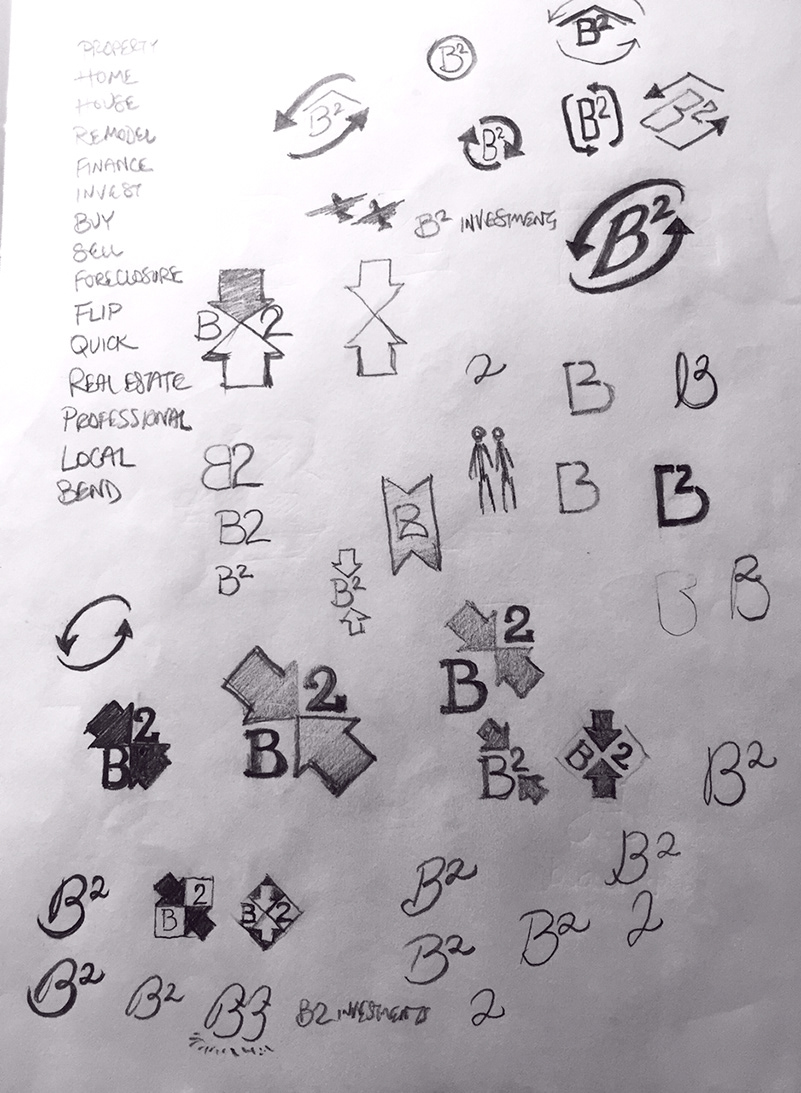 PROPERTY
HOME
HOUSE
REMODEL
FINANCE
INVEST
BUY
SELL
FORECLOSURE
FLIP
QUICK
REAL ESTATE
PROFESSIONAL
LOCAL
BEND
B²
B²
B²
B²
B²
B²
B² INVESTMENTS
B²
B 2
2
B
B
B2
B2
B²
B
B
B
B²
B
B
2
B
2
B
2
B
2
B
B²
B 2
B²
B²
2
B
B 2
B²
B²
B²
2
B²
B²
B²
B2 INVESTMENTS
2